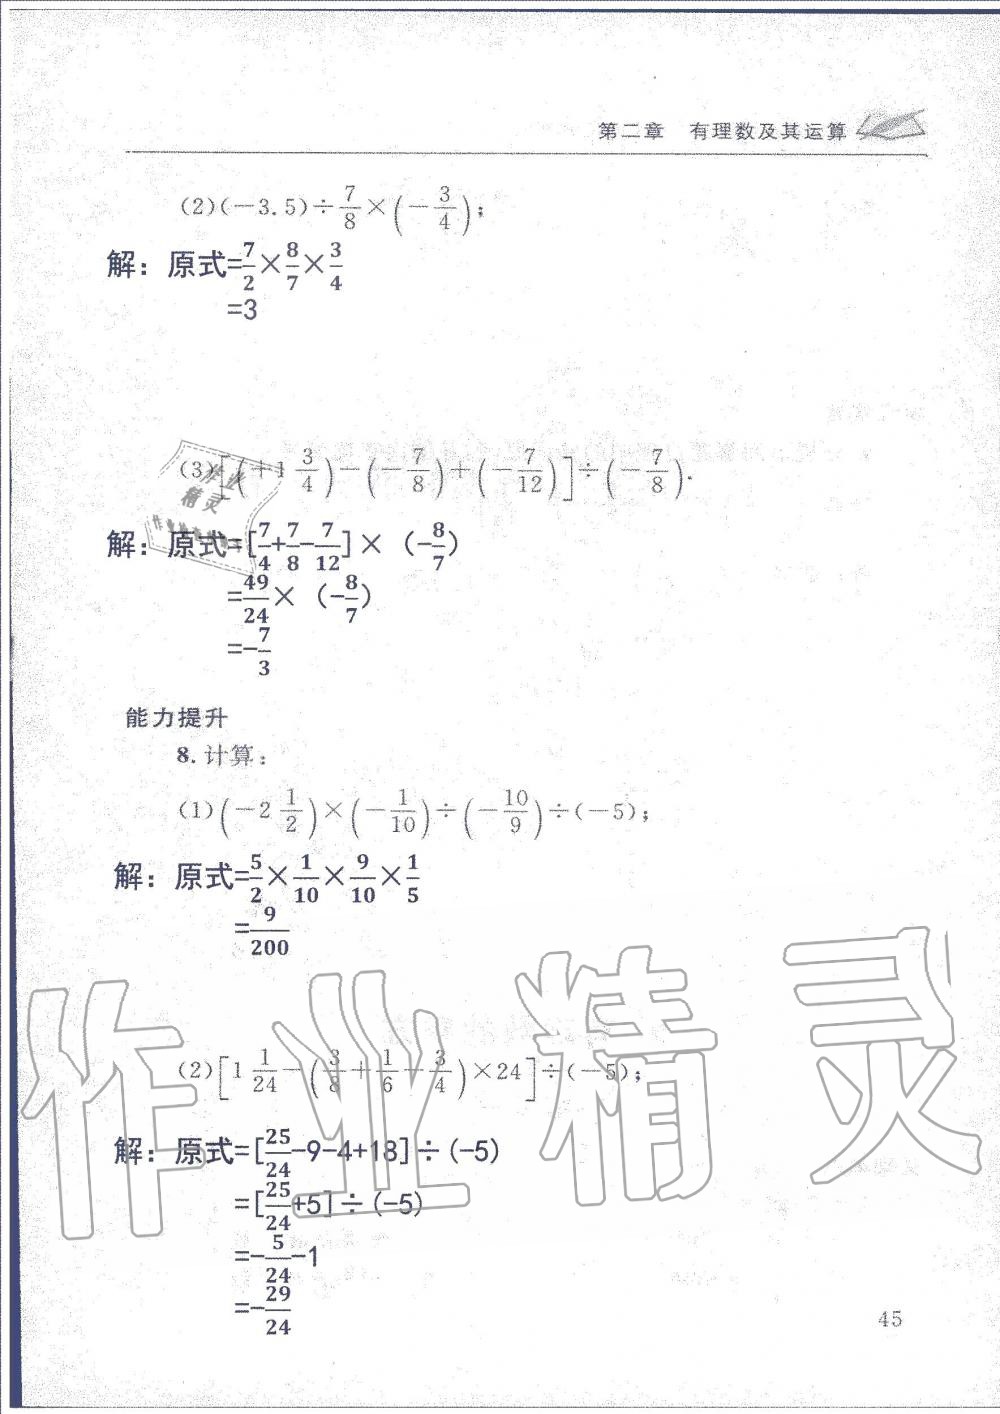 第二章 有理数及其运算
(2)(-3.5)÷7/8×(-3/4);
解：原式=7/2×8/7×3/4
=3
(3)[(+1 3/4)-(-7/8)+(-7/12)]÷(-7/8).
解：原式=[7/4+7/8-7/12]×（-8/7）
=49/24×（-8/7）
=-7/3
能力提升
8.计算：
(1)(-2 1/2)×(-1/10)÷(-10/9)÷(-5);
解：原式=5/2×1/10×9/10×1/5
=9/200
(2)[1 1/24-(3/8+1/6-3/4)×24]÷(-5);
解：原式=[25/24-9-4+18]÷(-5)
=[25/24+5]÷(-5)
=-5/24-1
=-29/24
45
作业精灵
作业
精灵